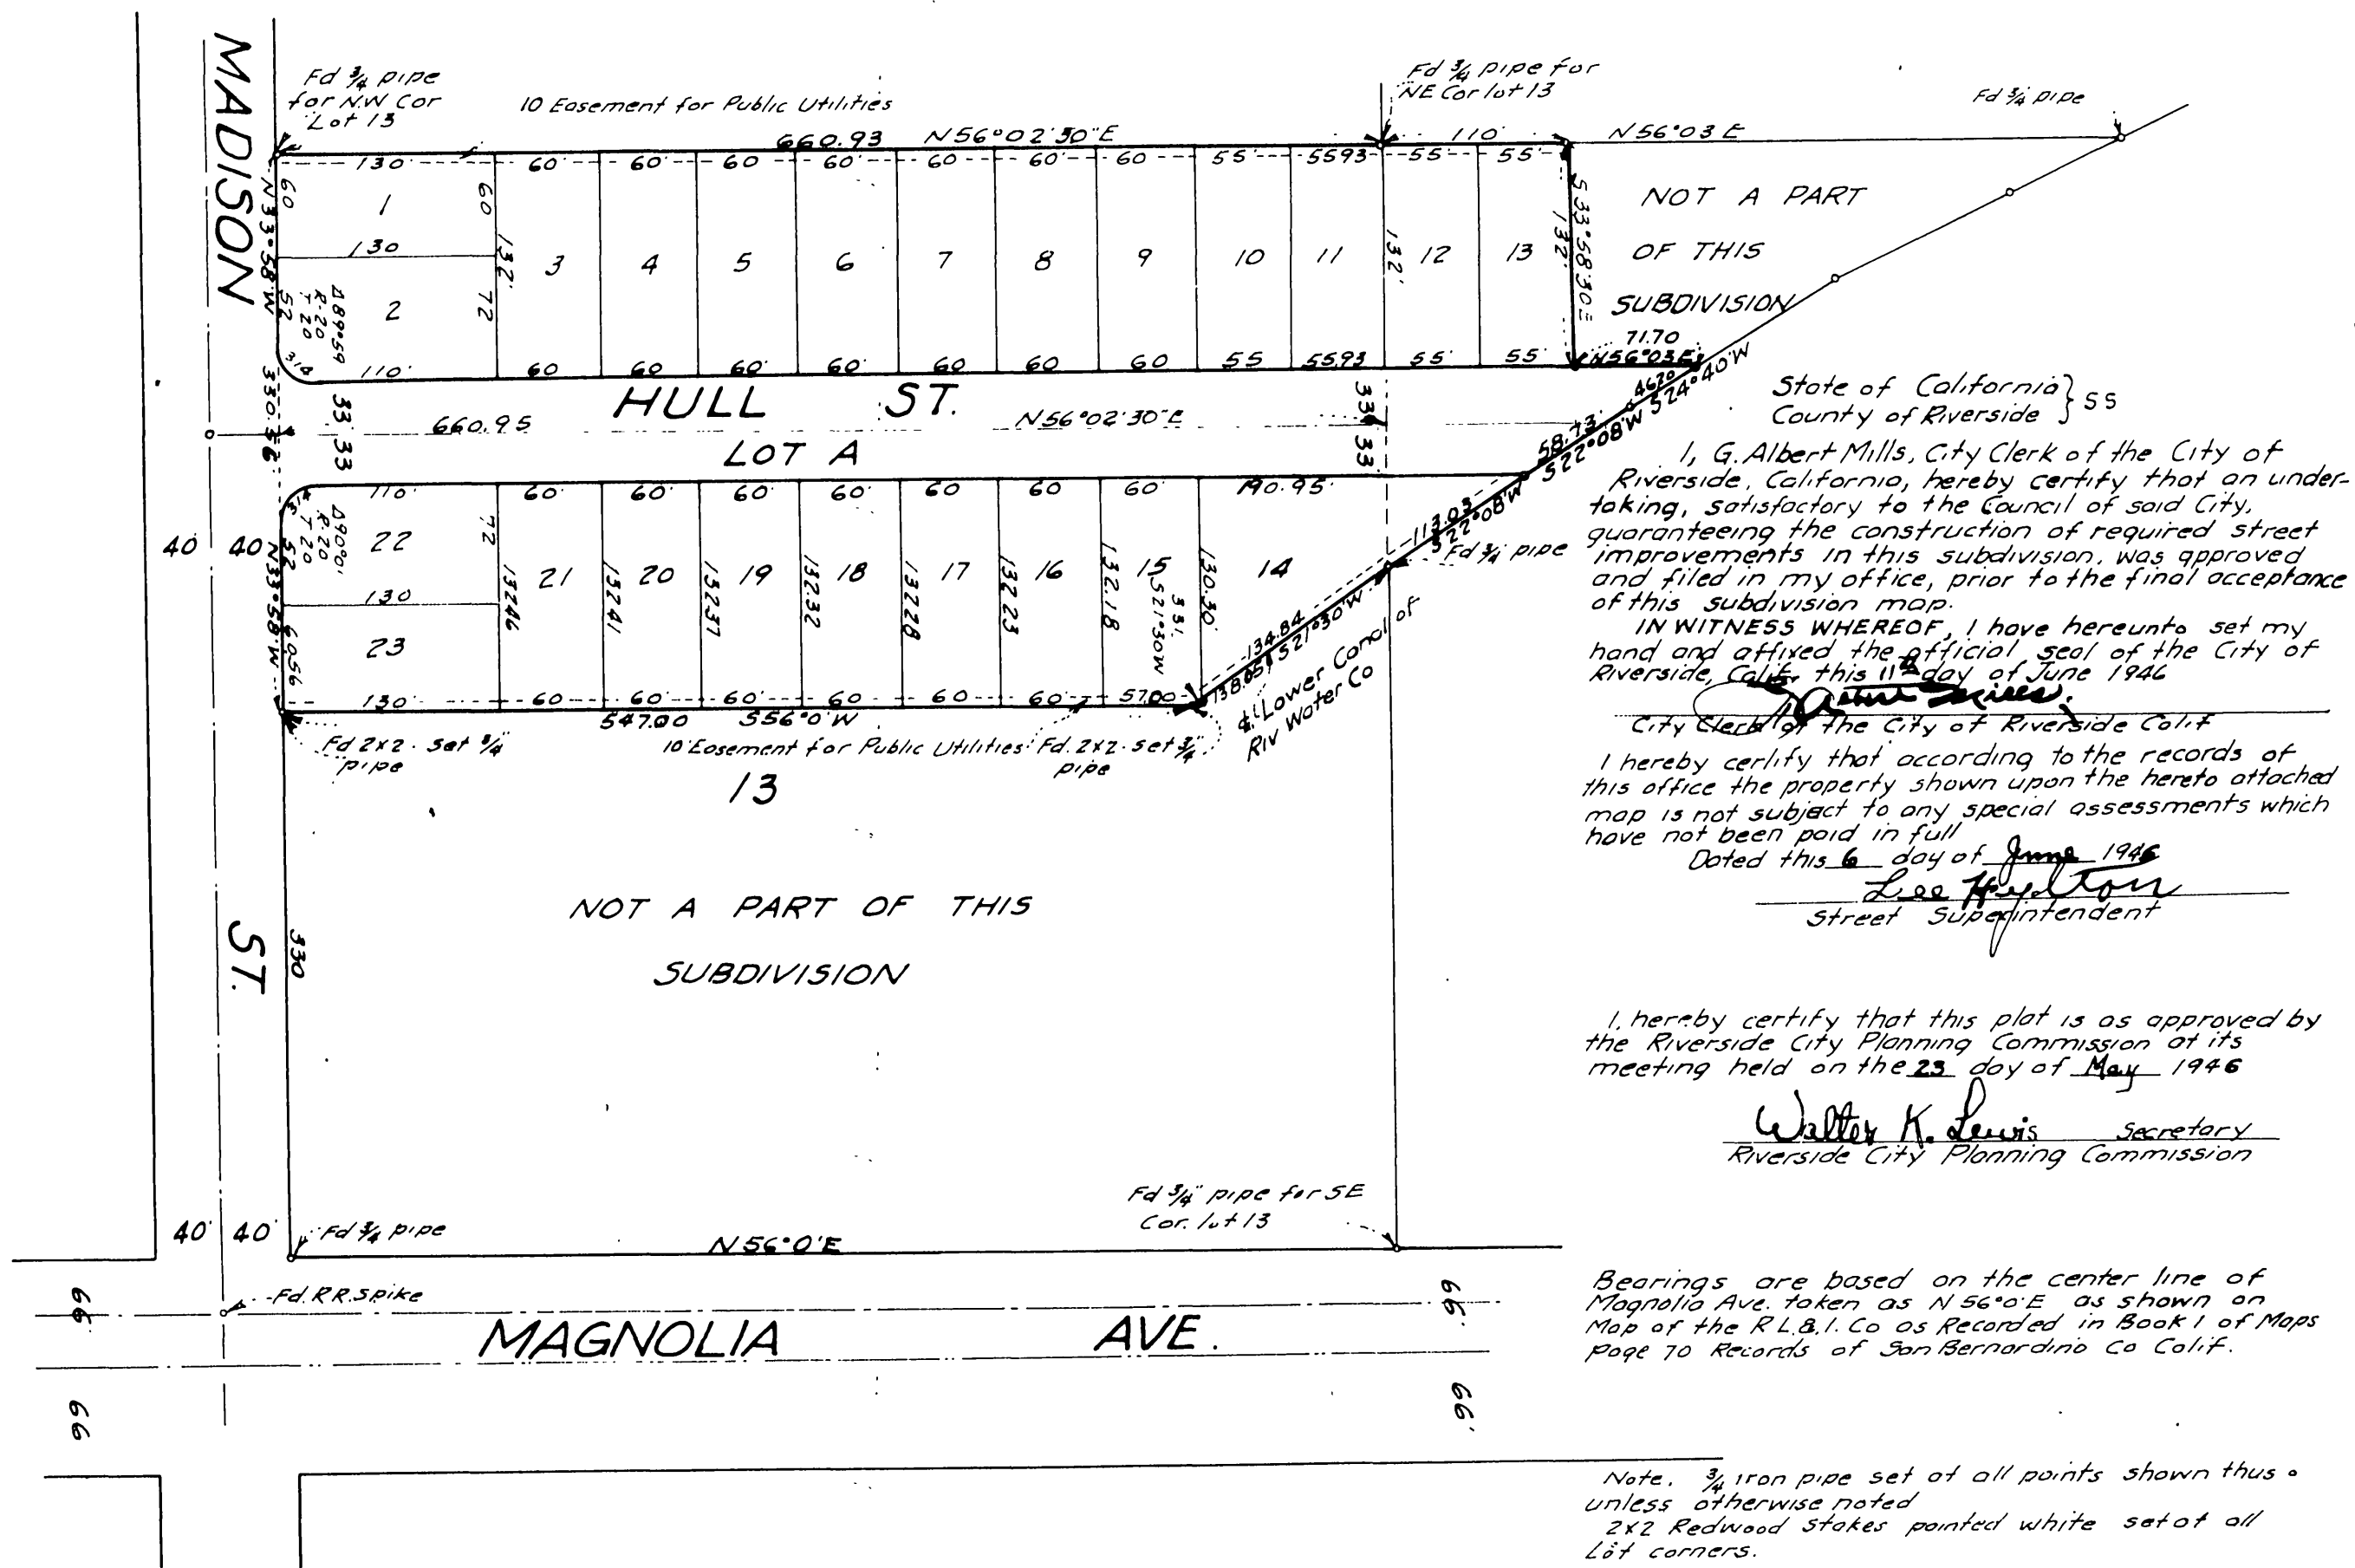 MADISON
ST.
Fd ¾ pipe
for N.W Cor
Lot 13
10 Easement for Public Utilities
Fd ¾ pipe for
NE Cor lot 13
Fd ¾ pipe
660.93 N56°02'30"E
110'
N56°03 E
130' 60' 60' 60 60' 60 60' 60 55' 5593 55' 55'
N33°58'W
60
1
60
130
132'
3 4 5 6 7 8 9 10 11 12 13
132'
132'
S33°58'30E
2
72
52
Δ89°59
R-20
T-20
31.4
110' 60 60 60' 60' 60 60 60 55 5593 55' 55'
NOT A PART
OF THIS
SUBDIVISION
71.70
N56°03E
4620
S24°40'W
330.56
33 33
HULL ST.
660.95 N56°02'30"E
LOT A
33 33
58.73'
S22°08'W
110' 60' 60' 60' 60' 60 60 60' 190.95'
113.03
S22°08'W
Fd ¾ pipe
40' 40'
52
Δ90°0'
R-20
T-20
22
72
130
23
N33°58'W
6056
13246 21 13241 20 13237 19 13232 18 13228 17 13223 16 132.18 15 130.30' 14
351.
S21°30W
134.84
138.05'
S21°30'W
℄ Lower Canal of
Riv Water Co
130' 60 60' 60' 60 60 60' 57.00
547.00 S56°0'W
Fd 2x2. set ¾"
pipe
10' Easement for Public Utilities
Fd. 2x2. set ¾"
pipe
13
NOT A PART OF THIS
SUBDIVISION
330
Fd ¾" pipe for SE
Cor. lot 13
40' 40'
Fd ¾ pipe
N56°0'E
66'
Fd. R.R. Spike
66'
MAGNOLIA AVE.
66
66'
State of California } SS
County of Riverside
I, G. Albert Mills, City Clerk of the City of
Riverside, California, hereby certify that an under-
taking, satisfactory to the Council of said City,
guaranteeing the construction of required street
improvements in this subdivision, was approved
and filed in my office, prior to the final acceptance
of this subdivision map.
IN WITNESS WHEREOF, I have hereunto set my
hand and affixed the official seal of the City of
Riverside, Calif. this 11th day of June 1946
City Clerk of the City of Riverside Calif
I hereby certify that according to the records of
this office the property shown upon the hereto attached
map is not subject to any special assessments which
have not been paid in full
Dated this 6 day of June 1946
Lee Hylton
Street Superintendent
I, hereby certify that this plat is as approved by
the Riverside City Planning Commission at its
meeting held on the 23 day of May 1946
Walter K. Lewis Secretary
Riverside City Planning Commission
Bearings are based on the center line of
Magnolia Ave. taken as N 56°0'E as shown on
Map of the R.L.&.I. Co as Recorded in Book 1 of Maps
page 70 Records of San Bernardino Co Calif.
Note. ¾ iron pipe set at all points shown thus o
unless otherwise noted
2x2 Redwood Stakes painted white set at all
Lot corners.